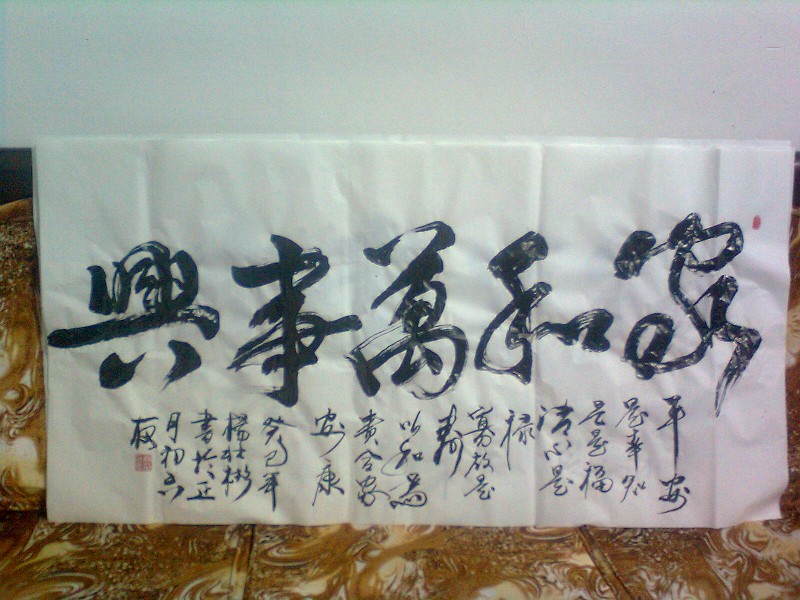 家和萬事興
平安
是幸知
足是福
清心是
禄
寡欲是
寿
以和為
貴合家
安康
癸巳年
書於正
月初六